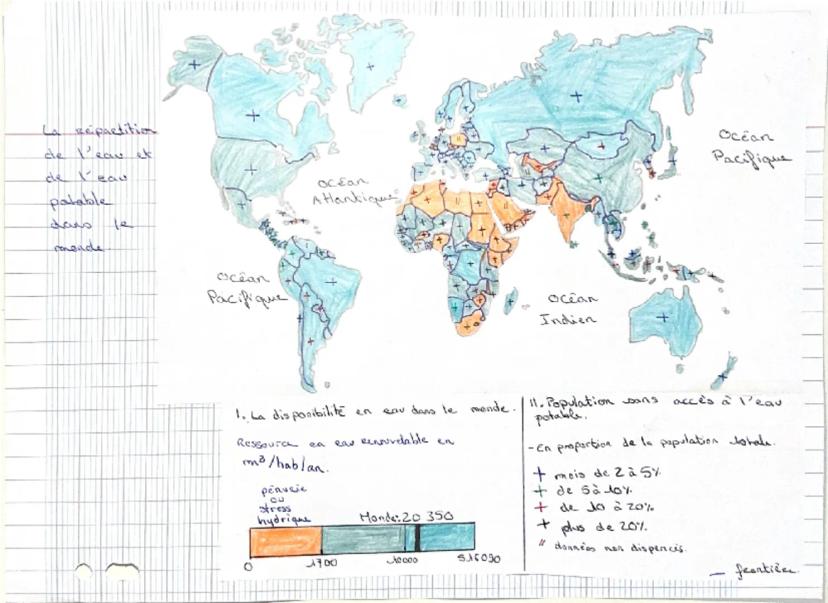 La répartition
de l'eau et
de l'eau
potable
dans le
monde.
Océan
Pacifique
Océan
Atlantique
Océan
Pacifique
Océan
Indien
I. La disponibilité en eau dans le monde.
Ressource en eau renouvelable en
m³/hab/an.
pénurie
ou
stress
hydrique
Monde: 20 350
0
1700
10000
516090
II. Population sans accès à l'eau
potable.
- En proportion de la population totale.
+ mois de 2 à 5%
+ de 5 à 10%
+ de 10 à 20%
+ plus de 20%
" données non dispencis.
_ frontière